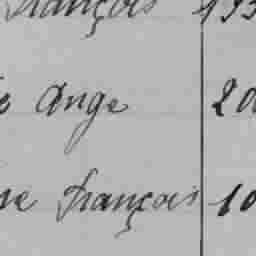 françois 193
Ange 20
se françois 10